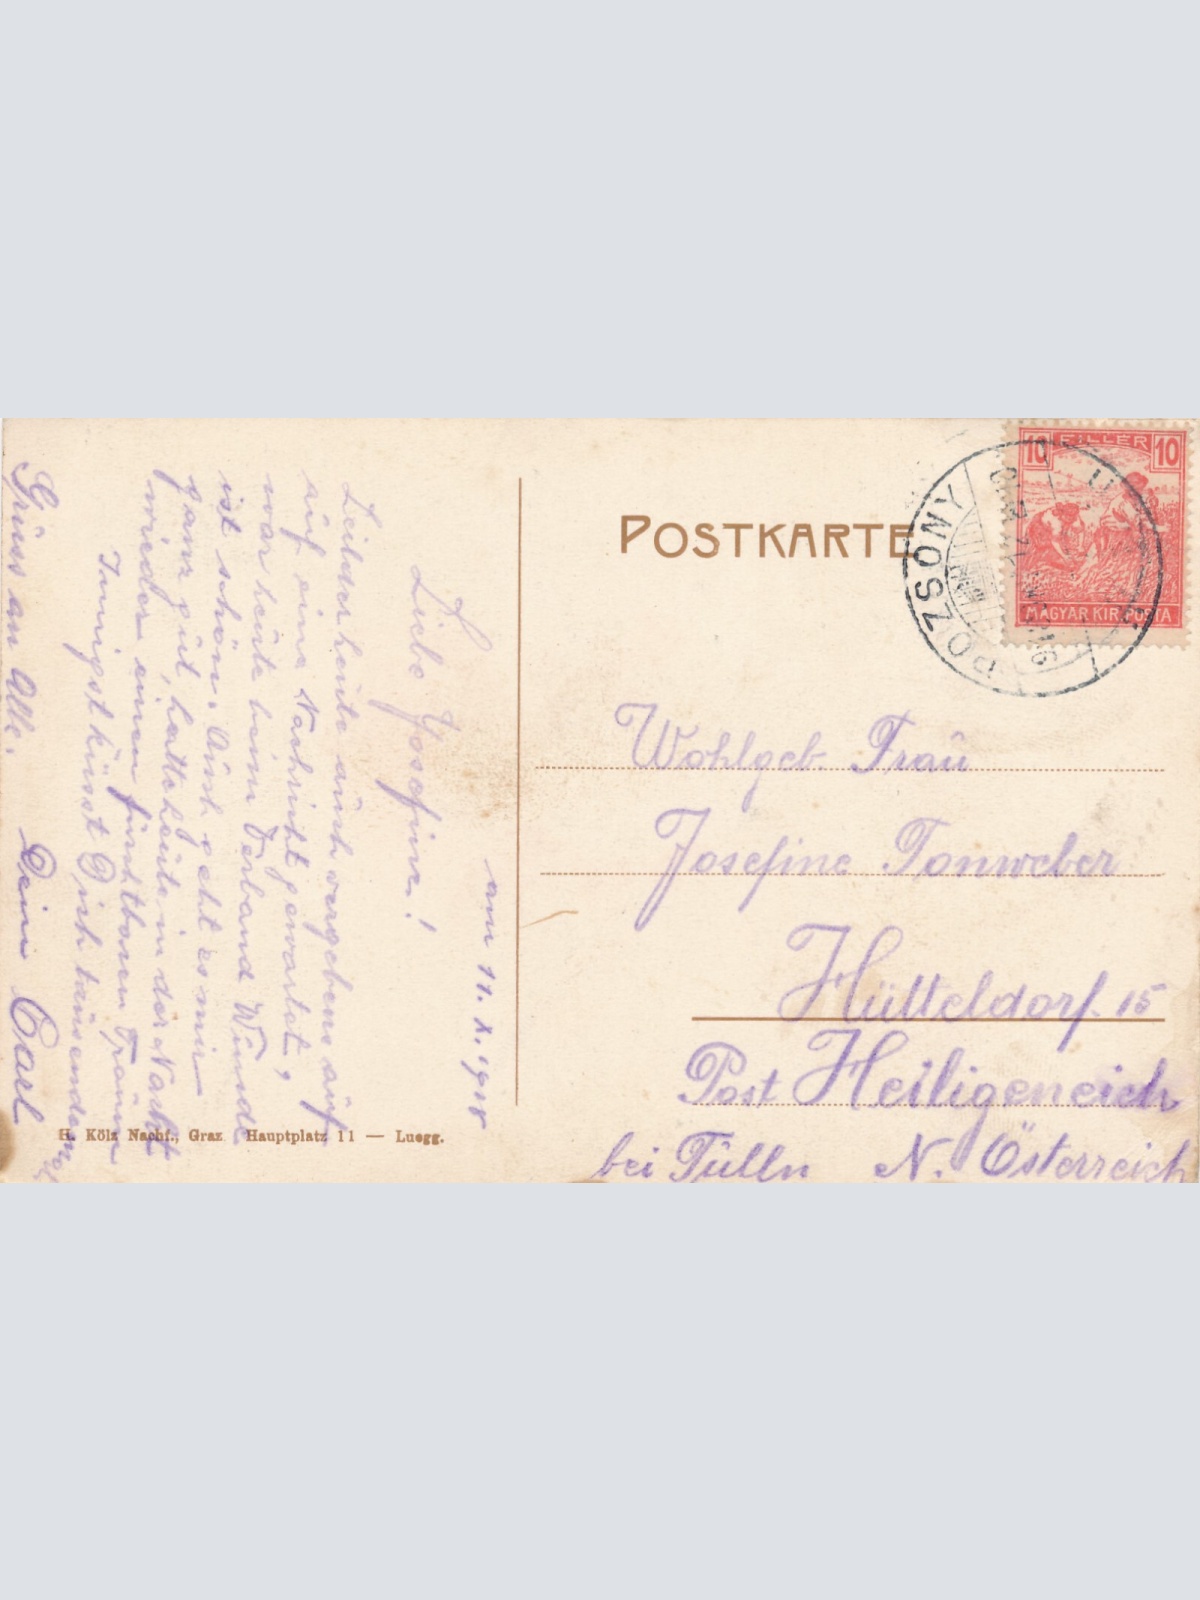 am 11. X. 1918
Liebe Josefine!
Leider heute auch vergebens auf
auf eine Nachricht gewartet,
war heute beim Verband Wunde
ist schön. Auch geht es mir
ganz gut, hatte heute in der Nacht
wieder einen furchtbaren Traum
Innigst küsst Dich tausendemal
Dein Carl
Grüss an Alle.
H. Kölz Nachf., Graz Hauptplatz 11 — Luegg.
POSTKARTE
10 FILLÉR 10
MAGYAR KIR. POSTA
POZSONY
POZSONY
Wohlgeb. Frau
Josefine Tonweber
Hütteldorf. 15
Post Heiligeneich
bei Tülln N. Österreich